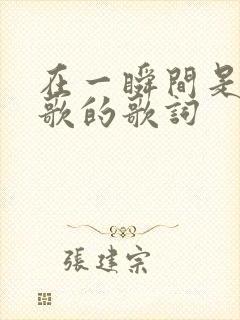 在一瞬間是
歌的歌詞
張建宗